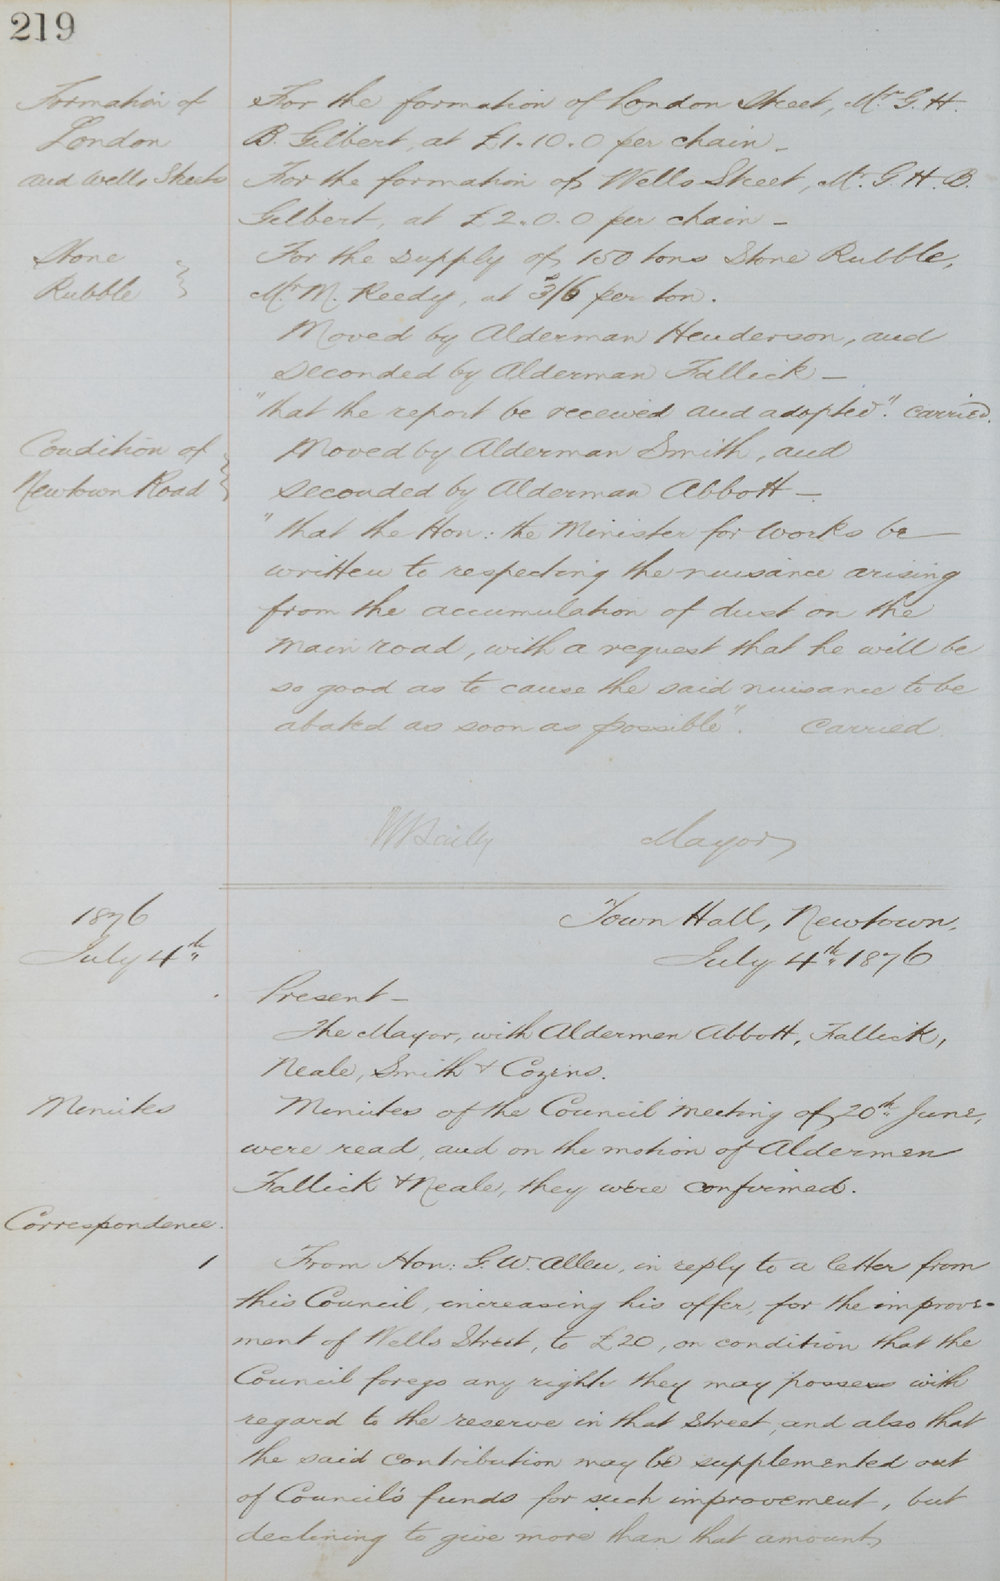 219
Formation of
London
and Wells Streets
For the formation of London Street, Mr. G. H.
B. Gilbert, at £1.10.0 per chain_
For the formation of Wells Street, Mr. G. H. B.
Gilbert, at £2.0.0 per chain_
Stone
Rubble
For the supply of 150 tons Stone Rubble,
Mr. M. Reedy, at 3/6 per ton.
Moved by Alderman Henderson, and
Seconded by Alderman Fallick_
"that the report be received and adopted". Carried.
Condition of
Newtown Road
Moved by Alderman Smith, and
Seconded by Alderman Abbott_
"that the Hon: the Minister for Works be
written to respecting the nuisance arising
from the accumulation of dust on the
main road, with a request that he will be
so good as to cause the said nuisance to be
abated as soon as possible". Carried.
Mayor
1876
July 4th
Town Hall, Newtown.
July 4th 1876
Present_
The Mayor, with Aldermen Abbott, Fallick,
Neale, Smith & Cozens.
Minutes
Minutes of the Council Meeting of 20th June,
were read, and on the motion of Aldermen
Fallick & Neale, they were confirmed.
Correspondence.
1
From Hon: G. W. Allen, in reply to a letter from
this Council, increasing his offer, for the improve-
ment of Wells Street, to £20, on condition that the
Council forego any right they may possess with
regard to the reserve in that Street, and also that
the said contribution may be supplemented out
of Council's funds for such improvement, but
declining to give more than that amount,